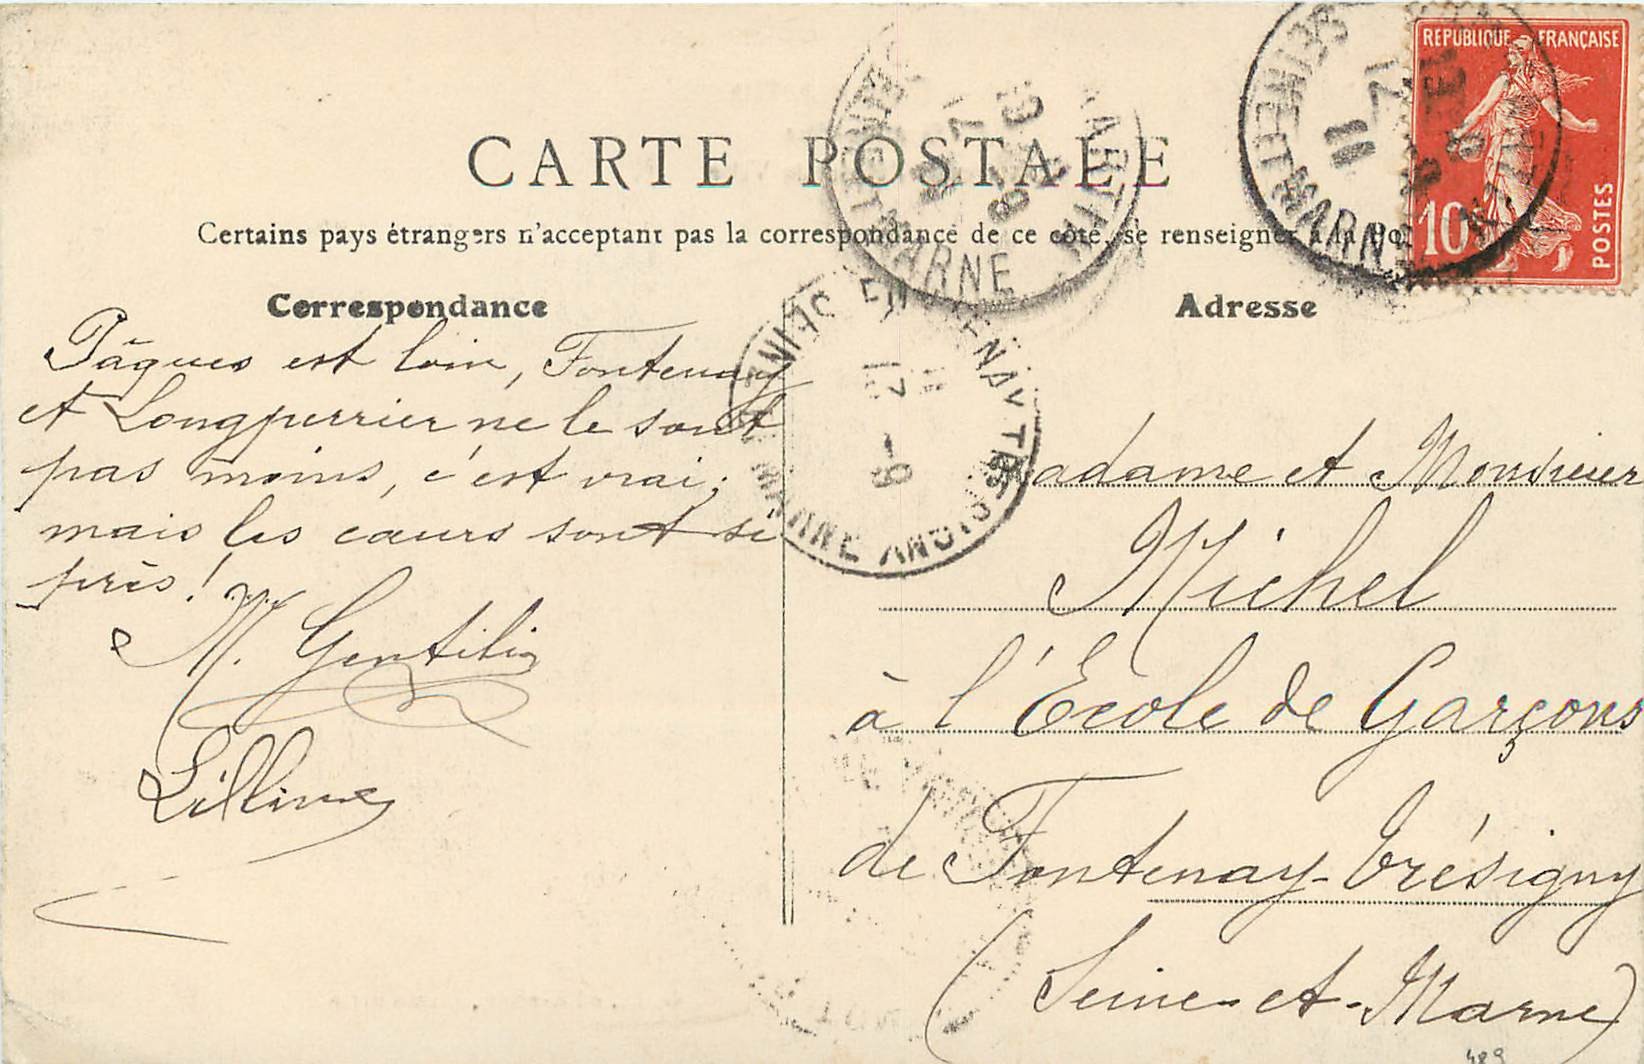 CARTE POSTALE
Certains pays étrangers n'acceptant pas la correspondance de ce côté, se renseigner à la
Correspondance
Pâques est loin, Fontenay
et Longperrier ne le sont
pas moins, c'est vrai;
mais les cœurs sont si
près!
M. Gentilin
Lilline
Adresse
Madame et Monsieur
Michel
à l'École de Garçons
de Fontenay-Trésigny
(Seine-et-Marne)
REPUBLIQUE FRANÇAISE
10c
POSTES
SEINE ET MARNE
11
MARNE
FONTENAY TRESIGNY
SEINE ET MARNE
489